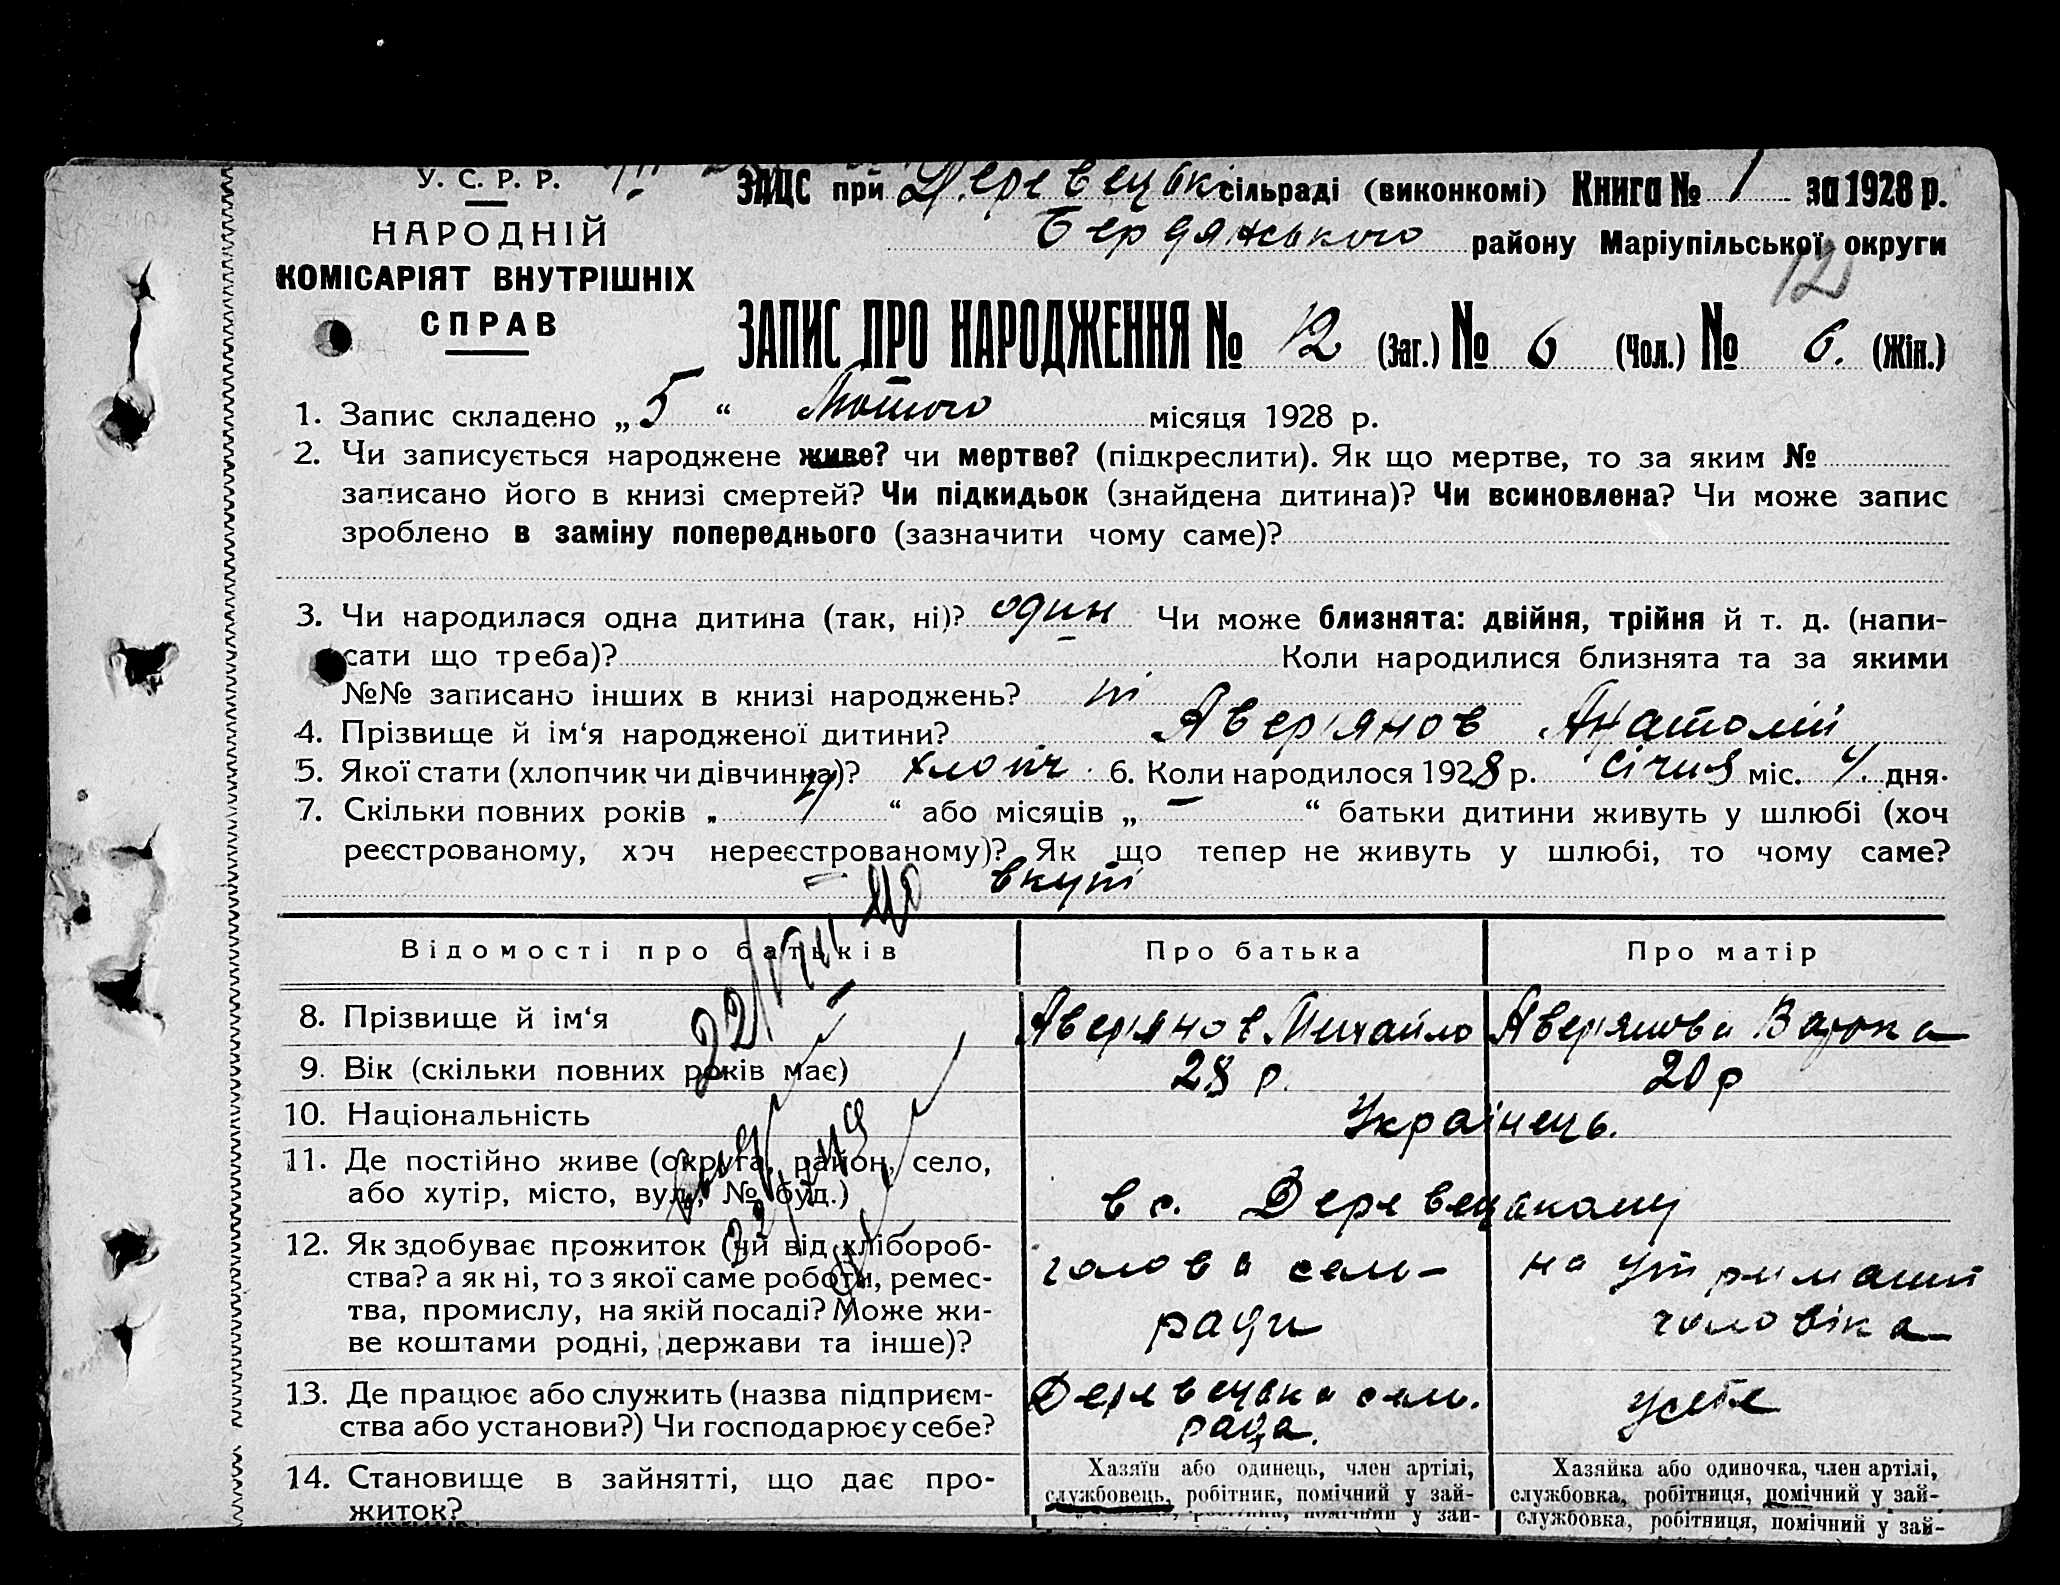 У. С. Р. Р. ЗАЦС при Деревецькі сільраді (виконкомі) Книга № 1 за 1928 р.
НАРОДНІЙ Бердянського району Маріупільської округи
КОМІСАРІЯТ ВНУТРІШНІХ 12
СПРАВ
ЗАПИС ПРО НАРОДЖЕННЯ № 12 (Заг.) № 6 (Чол.) № 6. (Жін.)
1. Запис складено „ 5 “ Лютого місяця 1928 р.
2. Чи записується народжене живе? чи мертве? (підкреслити). Як що мертве, то за яким №
записано його в книзі смертей? Чи підкидьок (знайдена дитина)? Чи всиновлена? Чи може запис
зроблено в заміну попереднього (зазначити чому саме)?
3. Чи народилася одна дитина (так, ні)? один Чи може близнята: двійня, трійня й т. д. (напи-
сати що треба)? Коли народилися близнята та за якими
№№ записано інших в книзі народжень? ні
4. Прізвище й ім‘я народженої дитини? Авер'янов Анатолій
5. Якої стати (хлопчик чи дівчинка)? хлопч 6. Коли народилося 1928 р. Січня міс. 4. дня.
7. Скільки повних років „ “ або місяців „ — “ батьки дитини живуть у шлюбі (хоч
реєстрованому, хоч нереєстрованому)? Як що тепер не живуть у шлюбі, то чому саме?
вкупі
Відомості про батьків Про батька Про матір
8. Прізвище й ім‘я Авер'янов Михайло Авер'янова Варка
9. Вік (скільки повних років має) 28 р. 20 р
10. Національність Українець.
11. Де постійно живе (округа, район, село,
або хутір, місто, вул., № буд.) в с. Деревецькому
12. Як здобуває прожиток (чи від хлібороб- голова сель- на утриманні
ства? а як ні, то з якої саме роботи, ремес-
тва, промислу, на якій посаді? Може жи- ради чоловіка
ве коштами родні, держави та інше)?
13. Де працює або служить (назва підприєм- Деревецька сель. усебе
ства або установи?) Чи господарює у себе? рада.
14. Становище в зайнятті, що дає про- Хазяїн або одинець, член артілі, Хазяйка або одиночка, член артілі,
житок? службовець, робітник, помічний у зай- службовка, робітниця, помічний у зай-
службовка, робітниця, помічний у зай-